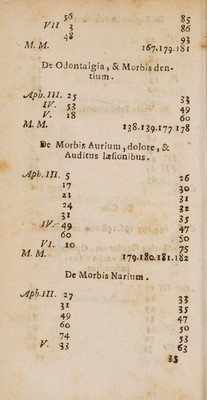 56 85
VII 3 86
48 93
M. M. 167.179.181
De Odontalgia, & Morbis den-
tium.
Aph. III. 25 33
IV. 53 49
V. 18 60
M. M. 138.139.177.178
De Morbis Aurium, dolore, &
Auditus læsionibus.
Aph. III. 5 26
17 30
21 31
24 32
31 35
IV. 49 47
60 50
VI. 10 75
M. M. 179.180.181.182
De Morbis Narium.
Aph. III. 27 33
31 35
49 47
60 50
74 53
V. 33 63
35